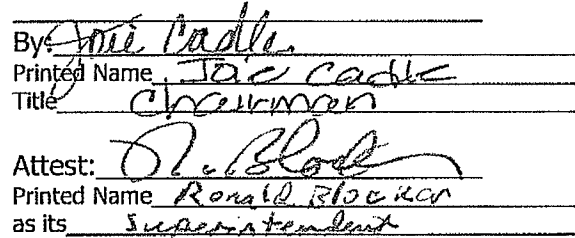 By: Joie Cadle
Printed Name Joie Cadle
Title Chairman
Attest: R. Blocker
Printed Name Ronald Blocker
as its Superintendent